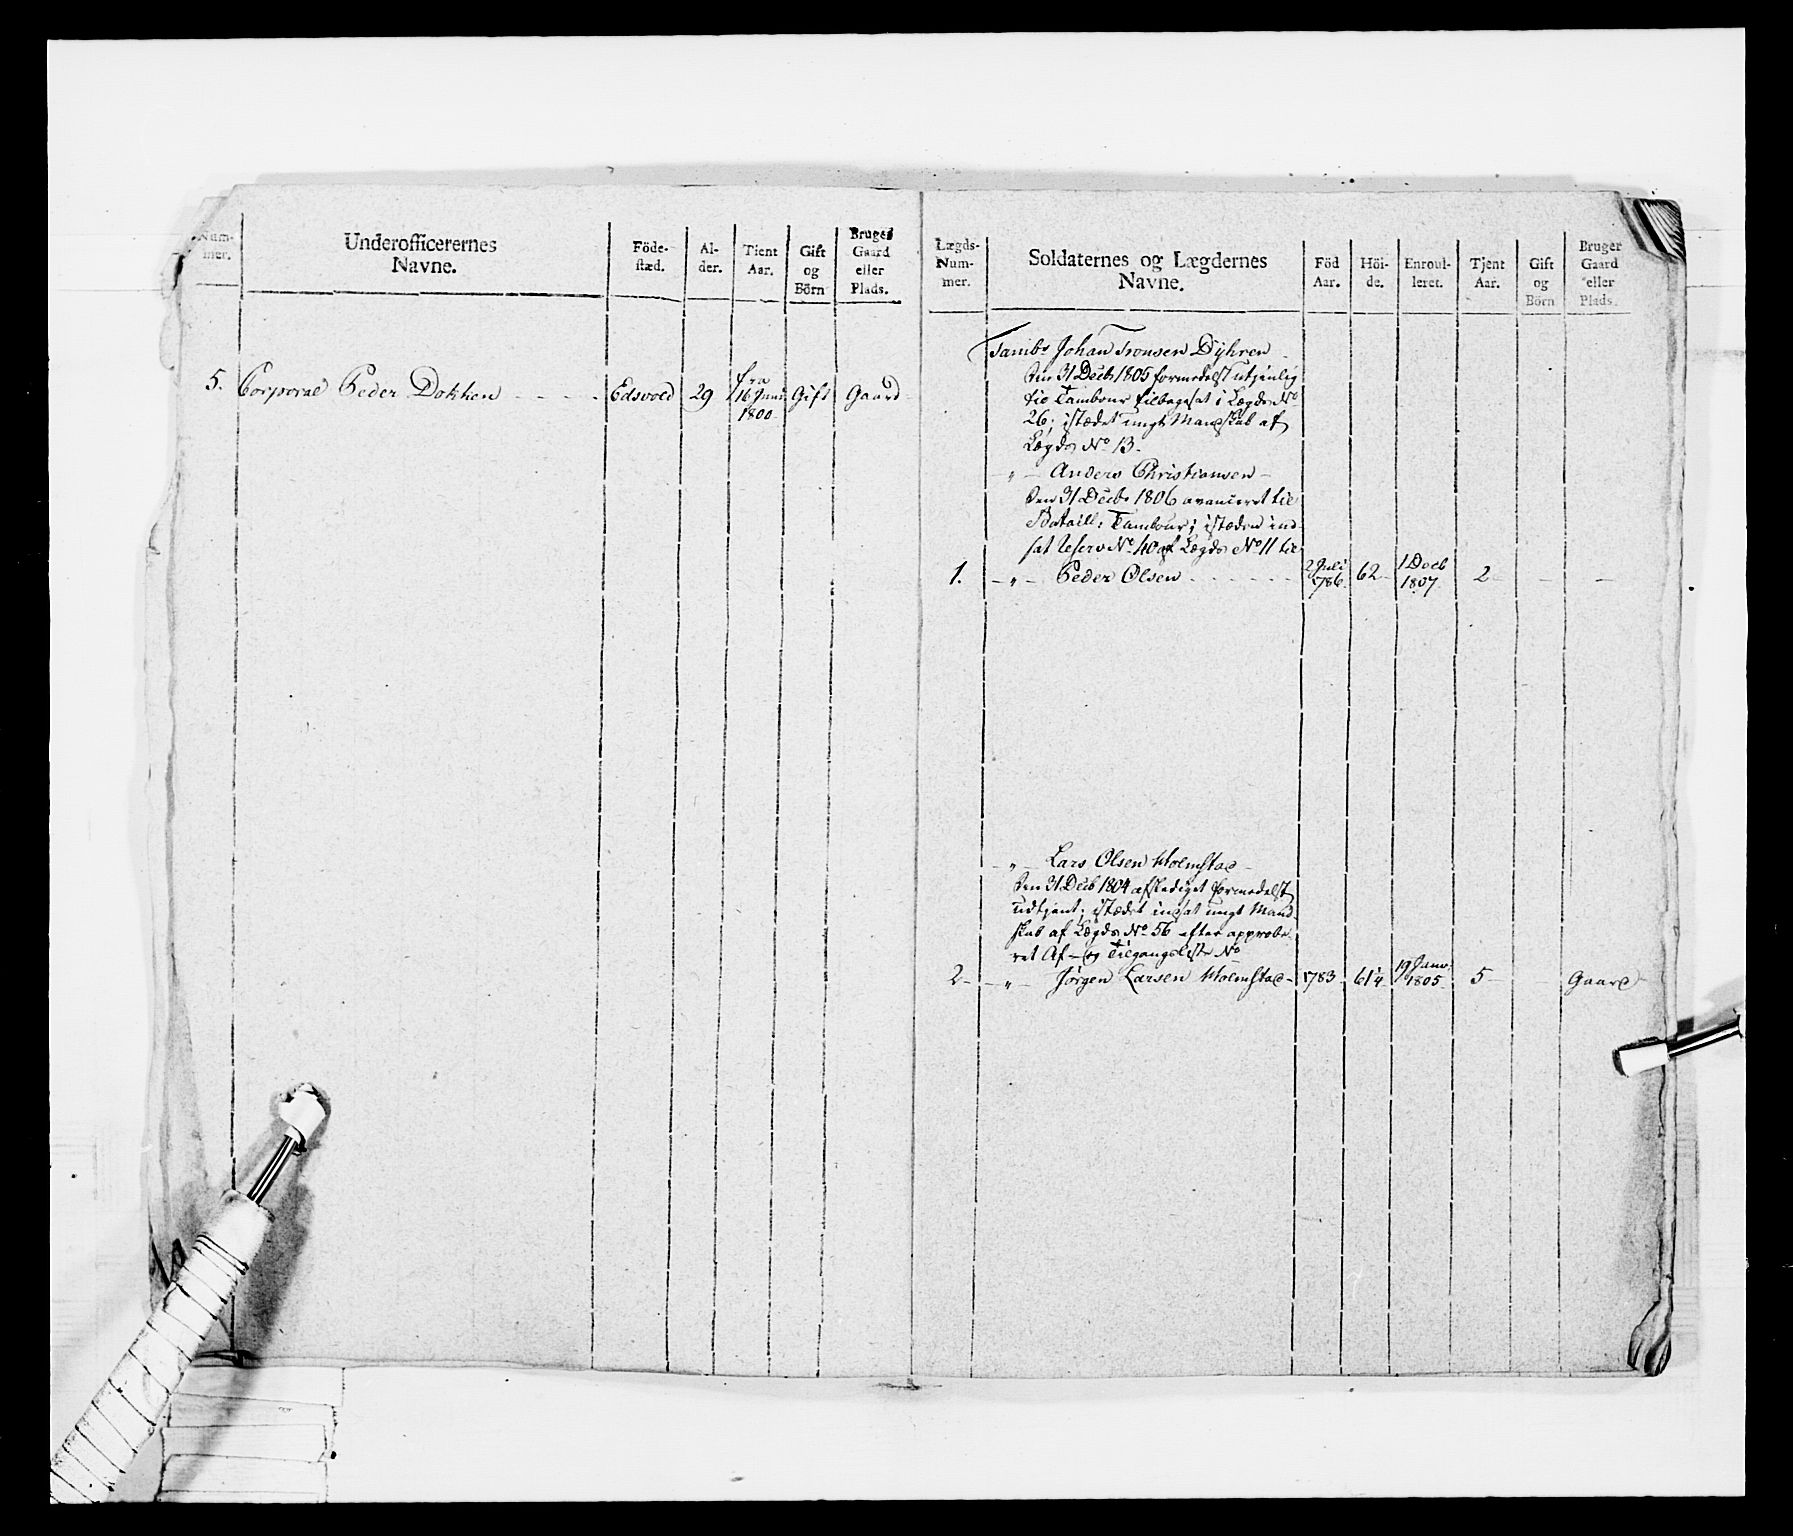 Num-
mer.
Underofficerernes
Navne.
Föde-
stæd.
Al-
der.
Tient
Aar.
Gift
og
Börn
Bruger
Gaard
eller
Plads.
5. Corporal Peder Dokken - - - - Edsvold 29 fra 16 Juni 1800 Gift Gaard
Lægds-
Num-
mer.
Soldaternes og Lægdernes
Navne.
Föd
Aar.
Höi-
de.
Enroul-
leret.
Tjent
Aar.
Gift
og
Börn
Bruger
Gaard
eller
Plads.
Tambr Johan Tronsen Dyhren
den 31 Decb 1805 formedelst utjenlig
til Tambour tilbagesat i Lægds No
26; istædet ungt Mandskab af
Lægds No 13.
" - Anders Christiansen -
den 31 Decbr 1806 avanceret til
Bataill: Tambour; istæden ind-
sat Reserv No 40 af Lægds No 11 til
1. - " - Peder Olsen - - - - - 2 Juli 1786. 62 - 1 Decb 1807. 2 - - -
- " - Lars Olsen Holmstad -
den 31 Decb 1804 afskediget formedelst
udtjent; istædet indsat ungt Mand
skab af Lægds No 56 efter approbe-
ret Af- og Tilgangsliste No
2 - - " - Jørgen Larsen Holmstad - 1783 61¼ 19 Janv. 1805 5 - - Gaard